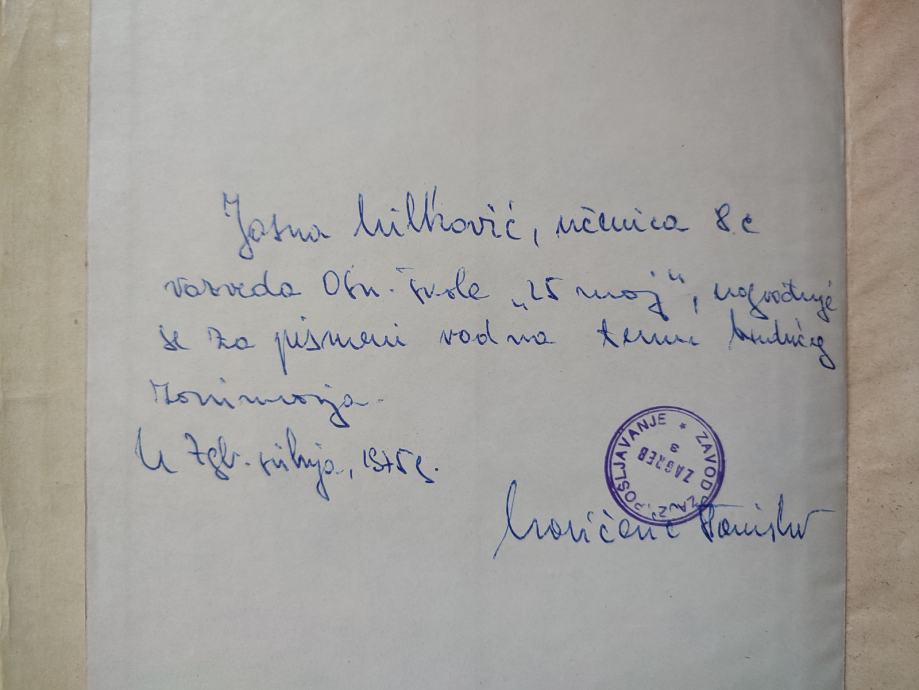 Jasna Milković, učenica 8. c
razreda Osn. škole „25 maj“, nagrađuje
se za pismeni rad na temu budućeg
zanimanja.
U Zgb. svibnja, 1975 g.
ZAVOD ZA ZAPOŠLJAVANJE * ZAGREB 3